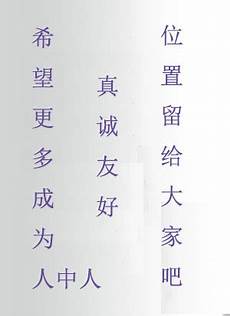 希望更多成为
人中人
真诚友好
位置留给大家吧